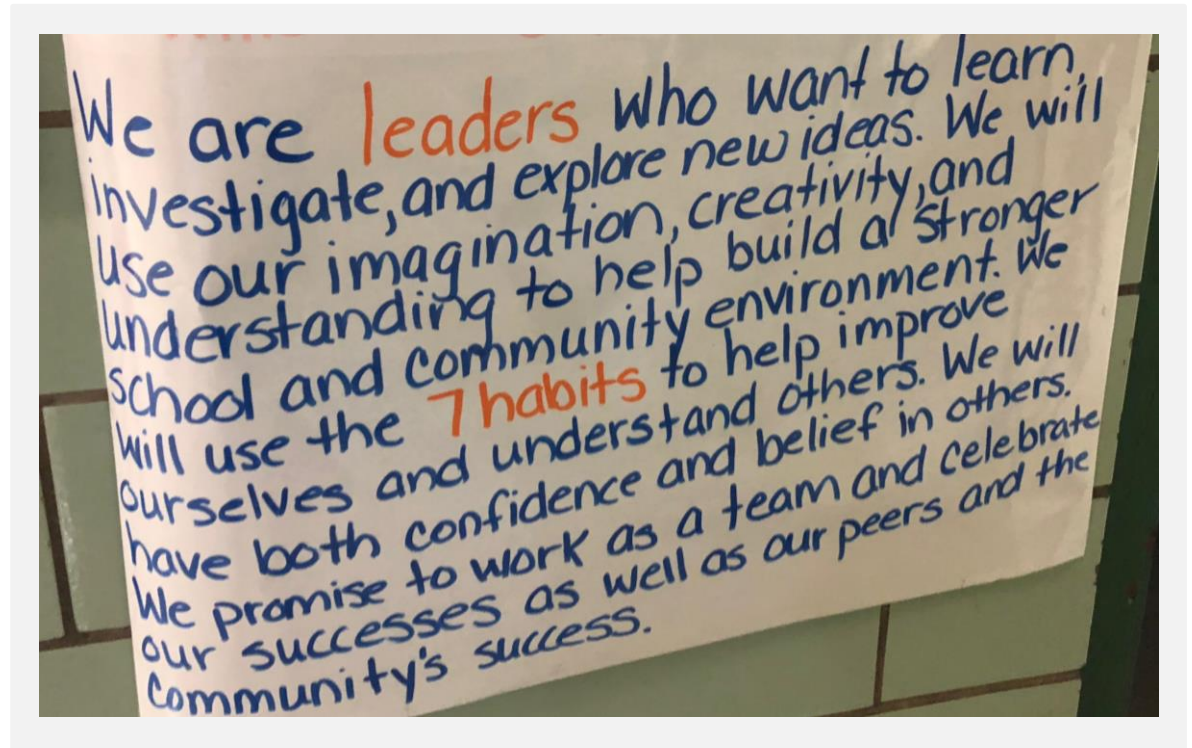 We are leaders who want to learn,
investigate, and explore new ideas. We will
use our imagination, creativity, and
understanding to help build a stronger
school and community environment. We
will use the 7 habits to help improve
ourselves and understand others. We will
have both confidence and belief in others.
We promise to work as a team and celebrate
our successes as well as our peers and the
Community's success.